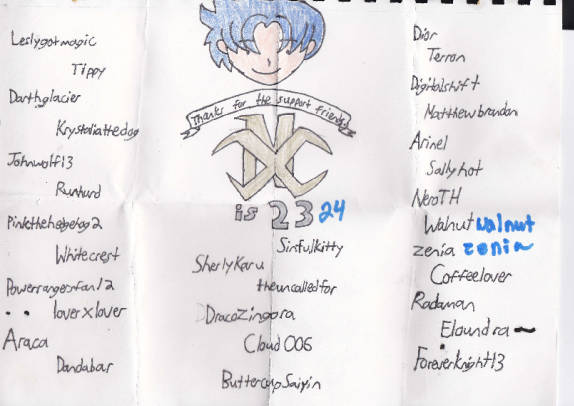 Leslygotmagic
Tippy
Darthglacier
Krystaliathedog
Johnwolf13
Runturd
Pinkthehedgehog2
Whitecrest
Powerrangersfan12
loverxlover
Araca
Dandabar
Thanks for the support friends
is 23 24
Sinfulkitty
SherlyKaru
theuncalledfor
DracoZingora
Cloud006
ButtercupSaiyin
Dior
Terron
Digitalshift
Matthewbrandon
Arinel
Sallyhot
NeoTH
Walnut walnut
zenia zenia
Coffeelover
Radaman
Eloundra
Foreverknight13